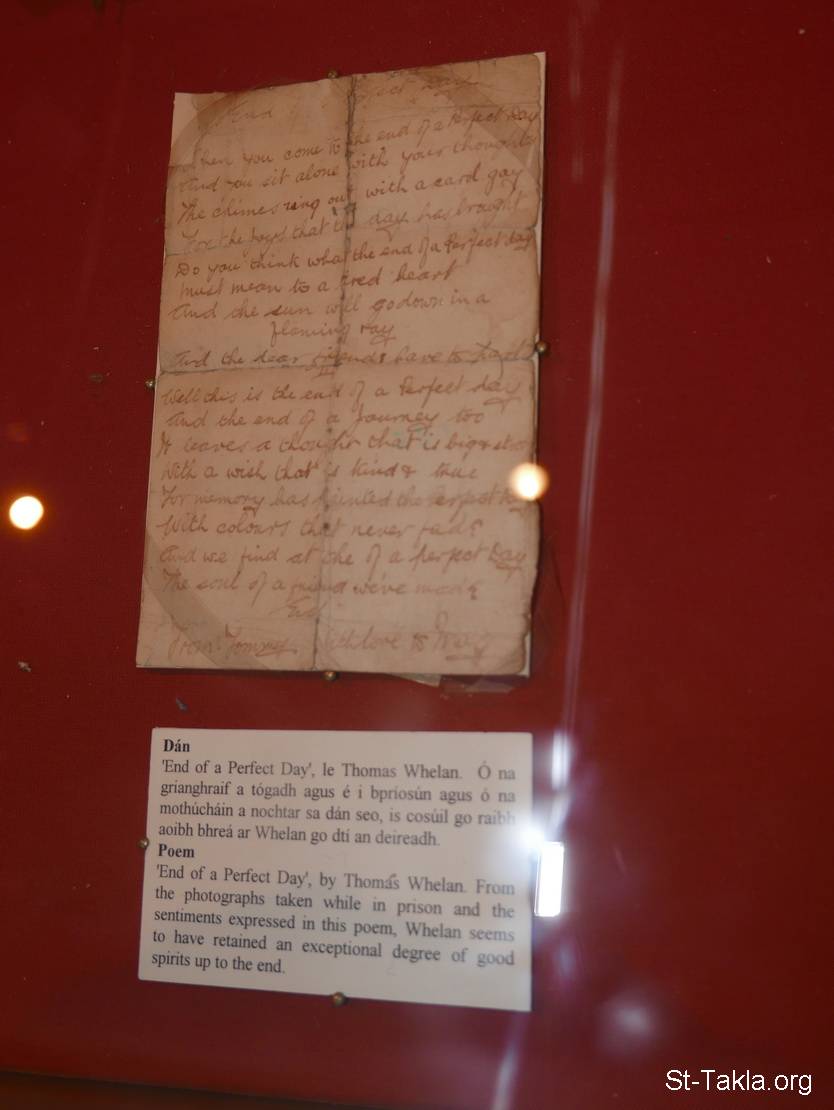 End Perfect Day
When you come to the end of a Perfect Day
And you sit alone with your thoughts
The chimes ring out with a card gay
For the joys that the day has brought
Do you think what the end of a Perfect day
must mean to a tired heart
And the sun will go down in a
flaming ray
And the dear friends have to part
II
Well this is the end of a Perfect day
And the end of a Journey too
It leaves a thought that is big &
With a wish that is kind & true
For memory has painted the perfect
With colours that never fade
And we find at the of a perfect Day
The soul of a friend we've made
End
From Tommy with love to
Dán
'End of a Perfect Day', le Thomas Whelan. Ó na
grianghraif a tógadh agus é i bpríosún agus ó na
mothúcháin a nochtar sa dán seo, is cosúil go raibh
aoibh bhreá ar Whelan go dtí an deireadh.
Poem
'End of a Perfect Day', by Thomas Whelan. From
the photographs taken while in prison and the
sentiments expressed in this poem, Whelan seems
to have retained an exceptional degree of good
spirits up to the end.
St-Takla.org